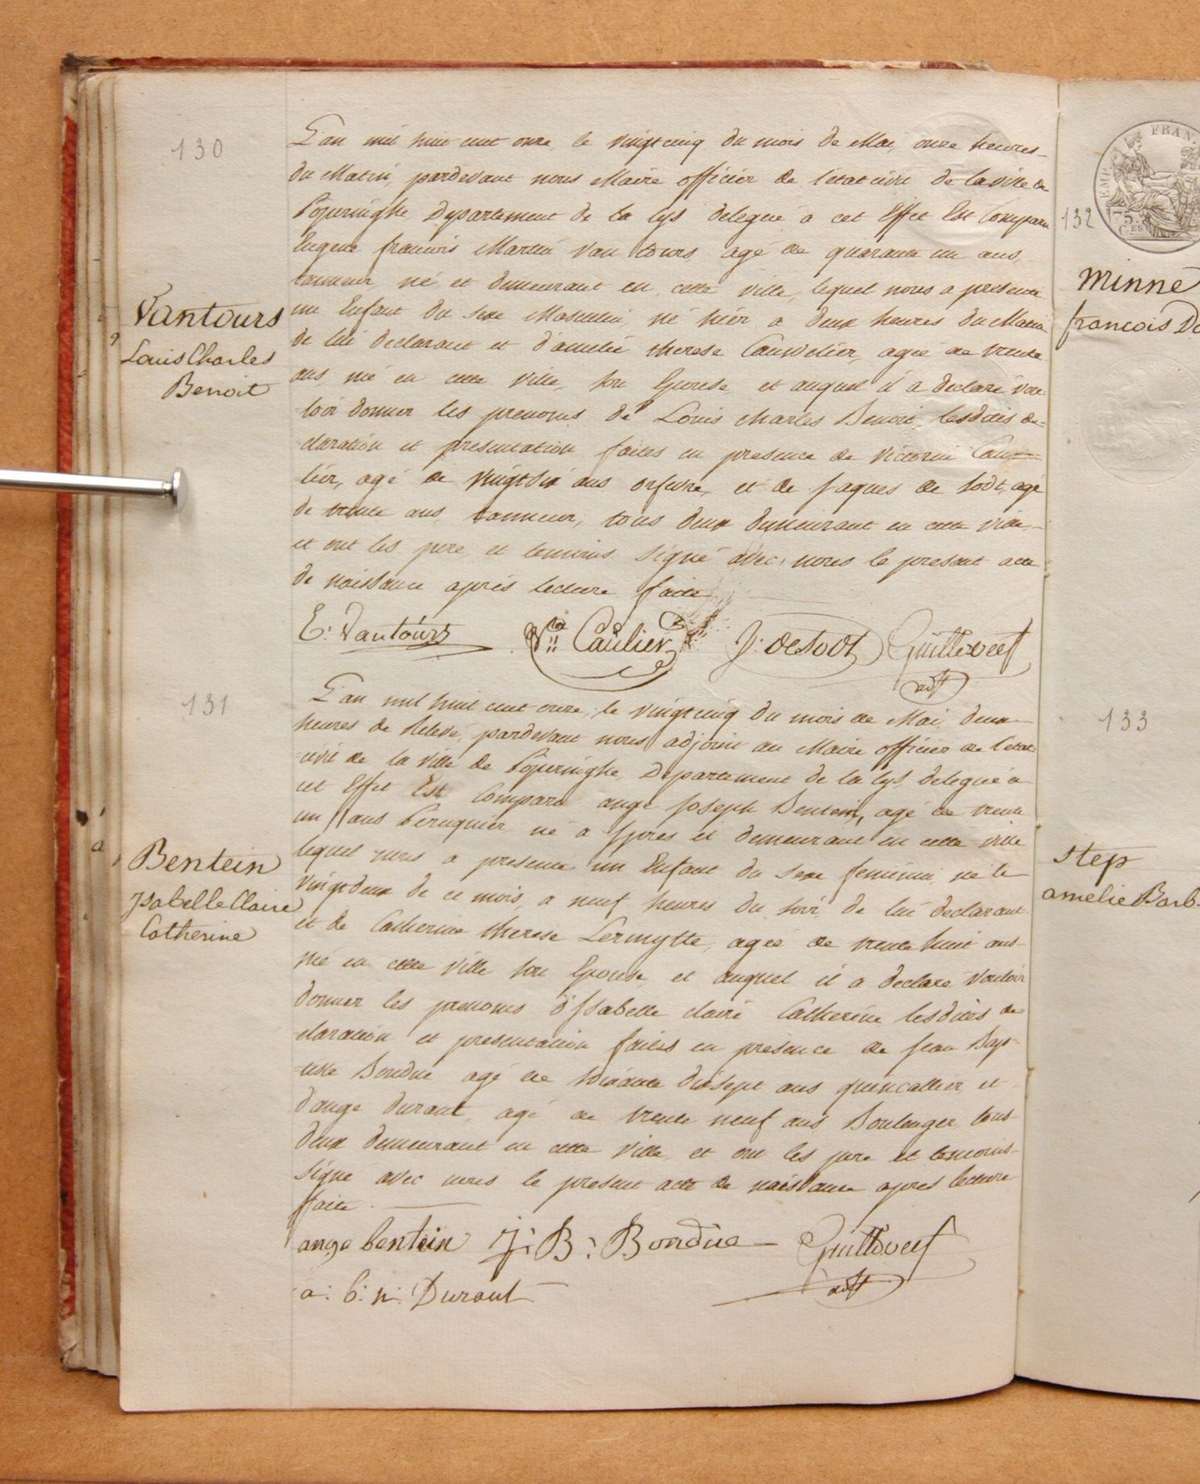 130
Vantours
Louis Charles
Benoit
L'an mil huit cent onze, le vingtcinq du mois de Mai, onze heures
du Matin, pardevant nous Maire officier de l'etat civil de la ville de
Poperinghe Departement de la Lys delegué a cet Effet Est Comparu
Eugene francois Martin Van tours agé de quarante un ans,
tanneur né et demeurant en cette ville, lequel nous a presenté
un Enfant du sexe Masculin né hier a deux heures du Matin
de lui declarant et d'amelie therese Cauwelier, agée de trente
ans née en cette ville, son Epouse et auquel il a declaré vou-
loir donner les prenoms de Louis Charles Benoit, lesdites de-
claration et presentation faites en presence de victorin Cau-
lier, agé de vingtsix ans orfevre, et de Jaques de Sodt, agé
de trente ans, tanneur, tous deux demeurant en cette ville
et ont les pere et temoins signé avec nous le present acte
de naissance après lecture faite
E: Vantours Vin Caulier J: deSodt Guilloweef
adjt
131
Bentein
ysabelle Claire
Catherine
L'an mil huit cent onze, le vingtcinq du mois de Mai, deux
heures de Relevé, pardevant nous adjoint au Maire officier de l'etat
civil de la ville de Poperinghe, Departement de la Lys, delegué a
cet Effet Est Comparu ange Joseph Bentein, agé de trente
un ans Peruquier né a Ypres et demeurant en cette ville
lequel nous a presenté un Enfant du sexe feminin, né le
vingtdeux de ce mois, a neuf heures du soir, de lui declarant
et de Catherine therese Lermytte, agée de trente huit ans
née en cette ville son Epouse, et auquel il a declaré vouloir
donner les prenoms d'Isabelle claire Catherine lesdites de
claration et presentation faites en presence de Jean Bap-
tiste Bondue agé de soixante dixsept ans quincallier et
d'ange Durant, agé de trente neuf ans Boulenger, tous
deux demeurant en cette ville, et ont les pere et temoins
signé avec nous le present acte de naissance après lecture
faite.
ange bentein J: B: Bondue Guilloweef
a: b: n: Durant adjt
132
FRAN
75
Minne
francois Do
133
Step
amelie Barb